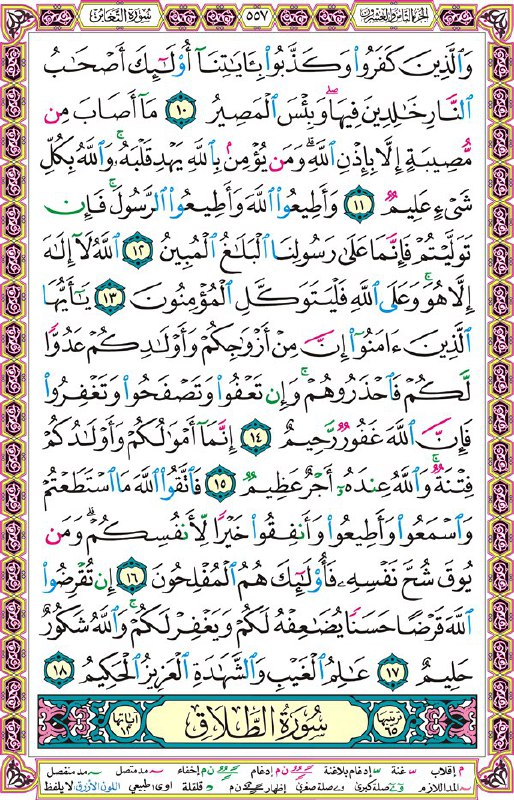 الجزء الثامن والعشرون ٥٥٧ سورة التغابن
وَالَّذِينَ كَفَرُوا۟ وَكَذَّبُوا۟ بِـَٔايَـٰتِنَآ أُو۟لَـٰٓئِكَ أَصْحَـٰبُ
ٱلنَّارِ خَـٰلِدِينَ فِيهَا ۖ وَبِئْسَ ٱلْمَصِيرُ ١٠ مَآ أَصَابَ مِن
مُّصِيبَةٍ إِلَّا بِإِذْنِ ٱللَّهِ ۗ وَمَن يُؤْمِنۢ بِٱللَّهِ يَهْدِ قَلْبَهُۥ ۚ وَٱللَّهُ بِكُلِّ
شَىْءٍ عَلِيمٌ ١١ وَأَطِيعُوا۟ ٱللَّهَ وَأَطِيعُوا۟ ٱلرَّسُولَ ۚ فَإِن
تَوَلَّيْتُمْ فَإِنَّمَا عَلَىٰ رَسُولِنَا ٱلْبَلَـٰغُ ٱلْمُبِينُ ١٢ ٱللَّهُ لَآ إِلَـٰهَ
إِلَّا هُوَ ۚ وَعَلَى ٱللَّهِ فَلْيَتَوَكَّلِ ٱلْمُؤْمِنُونَ ١٣ يَـٰٓأَيُّهَا
ٱلَّذِينَ ءَامَنُوٓا۟ إِنَّ مِنْ أَزْوَٰجِكُمْ وَأَوْلَـٰدِكُمْ عَدُوًّا
لَّكُمْ فَٱحْذَرُوهُمْ ۚ وَإِن تَعْفُوا۟ وَتَصْفَحُوا۟ وَتَغْفِرُوا۟
فَإِنَّ ٱللَّهَ غَفُورٌ رَّحِيمٌ ١٤ إِنَّمَآ أَمْوَٰلُكُمْ وَأَوْلَـٰدُكُمْ
فِتْنَةٌ ۚ وَٱللَّهُ عِندَهُۥٓ أَجْرٌ عَظِيمٌ ١٥ فَٱتَّقُوا۟ ٱللَّهَ مَا ٱسْتَطَعْتُمْ
وَٱسْمَعُوا۟ وَأَطِيعُوا۟ وَأَنفِقُوا۟ خَيْرًا لِّأَنفُسِكُمْ ۗ وَمَن
يُوقَ شُحَّ نَفْسِهِۦ فَأُو۟لَـٰٓئِكَ هُمُ ٱلْمُفْلِحُونَ ١٦ إِن تُقْرِضُوا۟
ٱللَّهَ قَرْضًا حَسَنًا يُضَـٰعِفْهُ لَكُمْ وَيَغْفِرْ لَكُمْ ۚ وَٱللَّهُ شَكُورٌ
حَلِيمٌ ١٧ عَـٰلِمُ ٱلْغَيْبِ وَٱلشَّهَـٰدَةِ ٱلْعَزِيزُ ٱلْحَكِيمُ ١٨
ترتيبها ٦٥ سُورَةُ الطَّلَاقِ آياتها ١٢
م إقلاب س غنة إدغام بلاغنة ن م إدغام ن م إخفاء مد متصل مد منفصل
المد اللازم صلة كبرى صلة صغرى إظهار ن م قلقلة طبيعي اللون الأزرق لا يلفظ